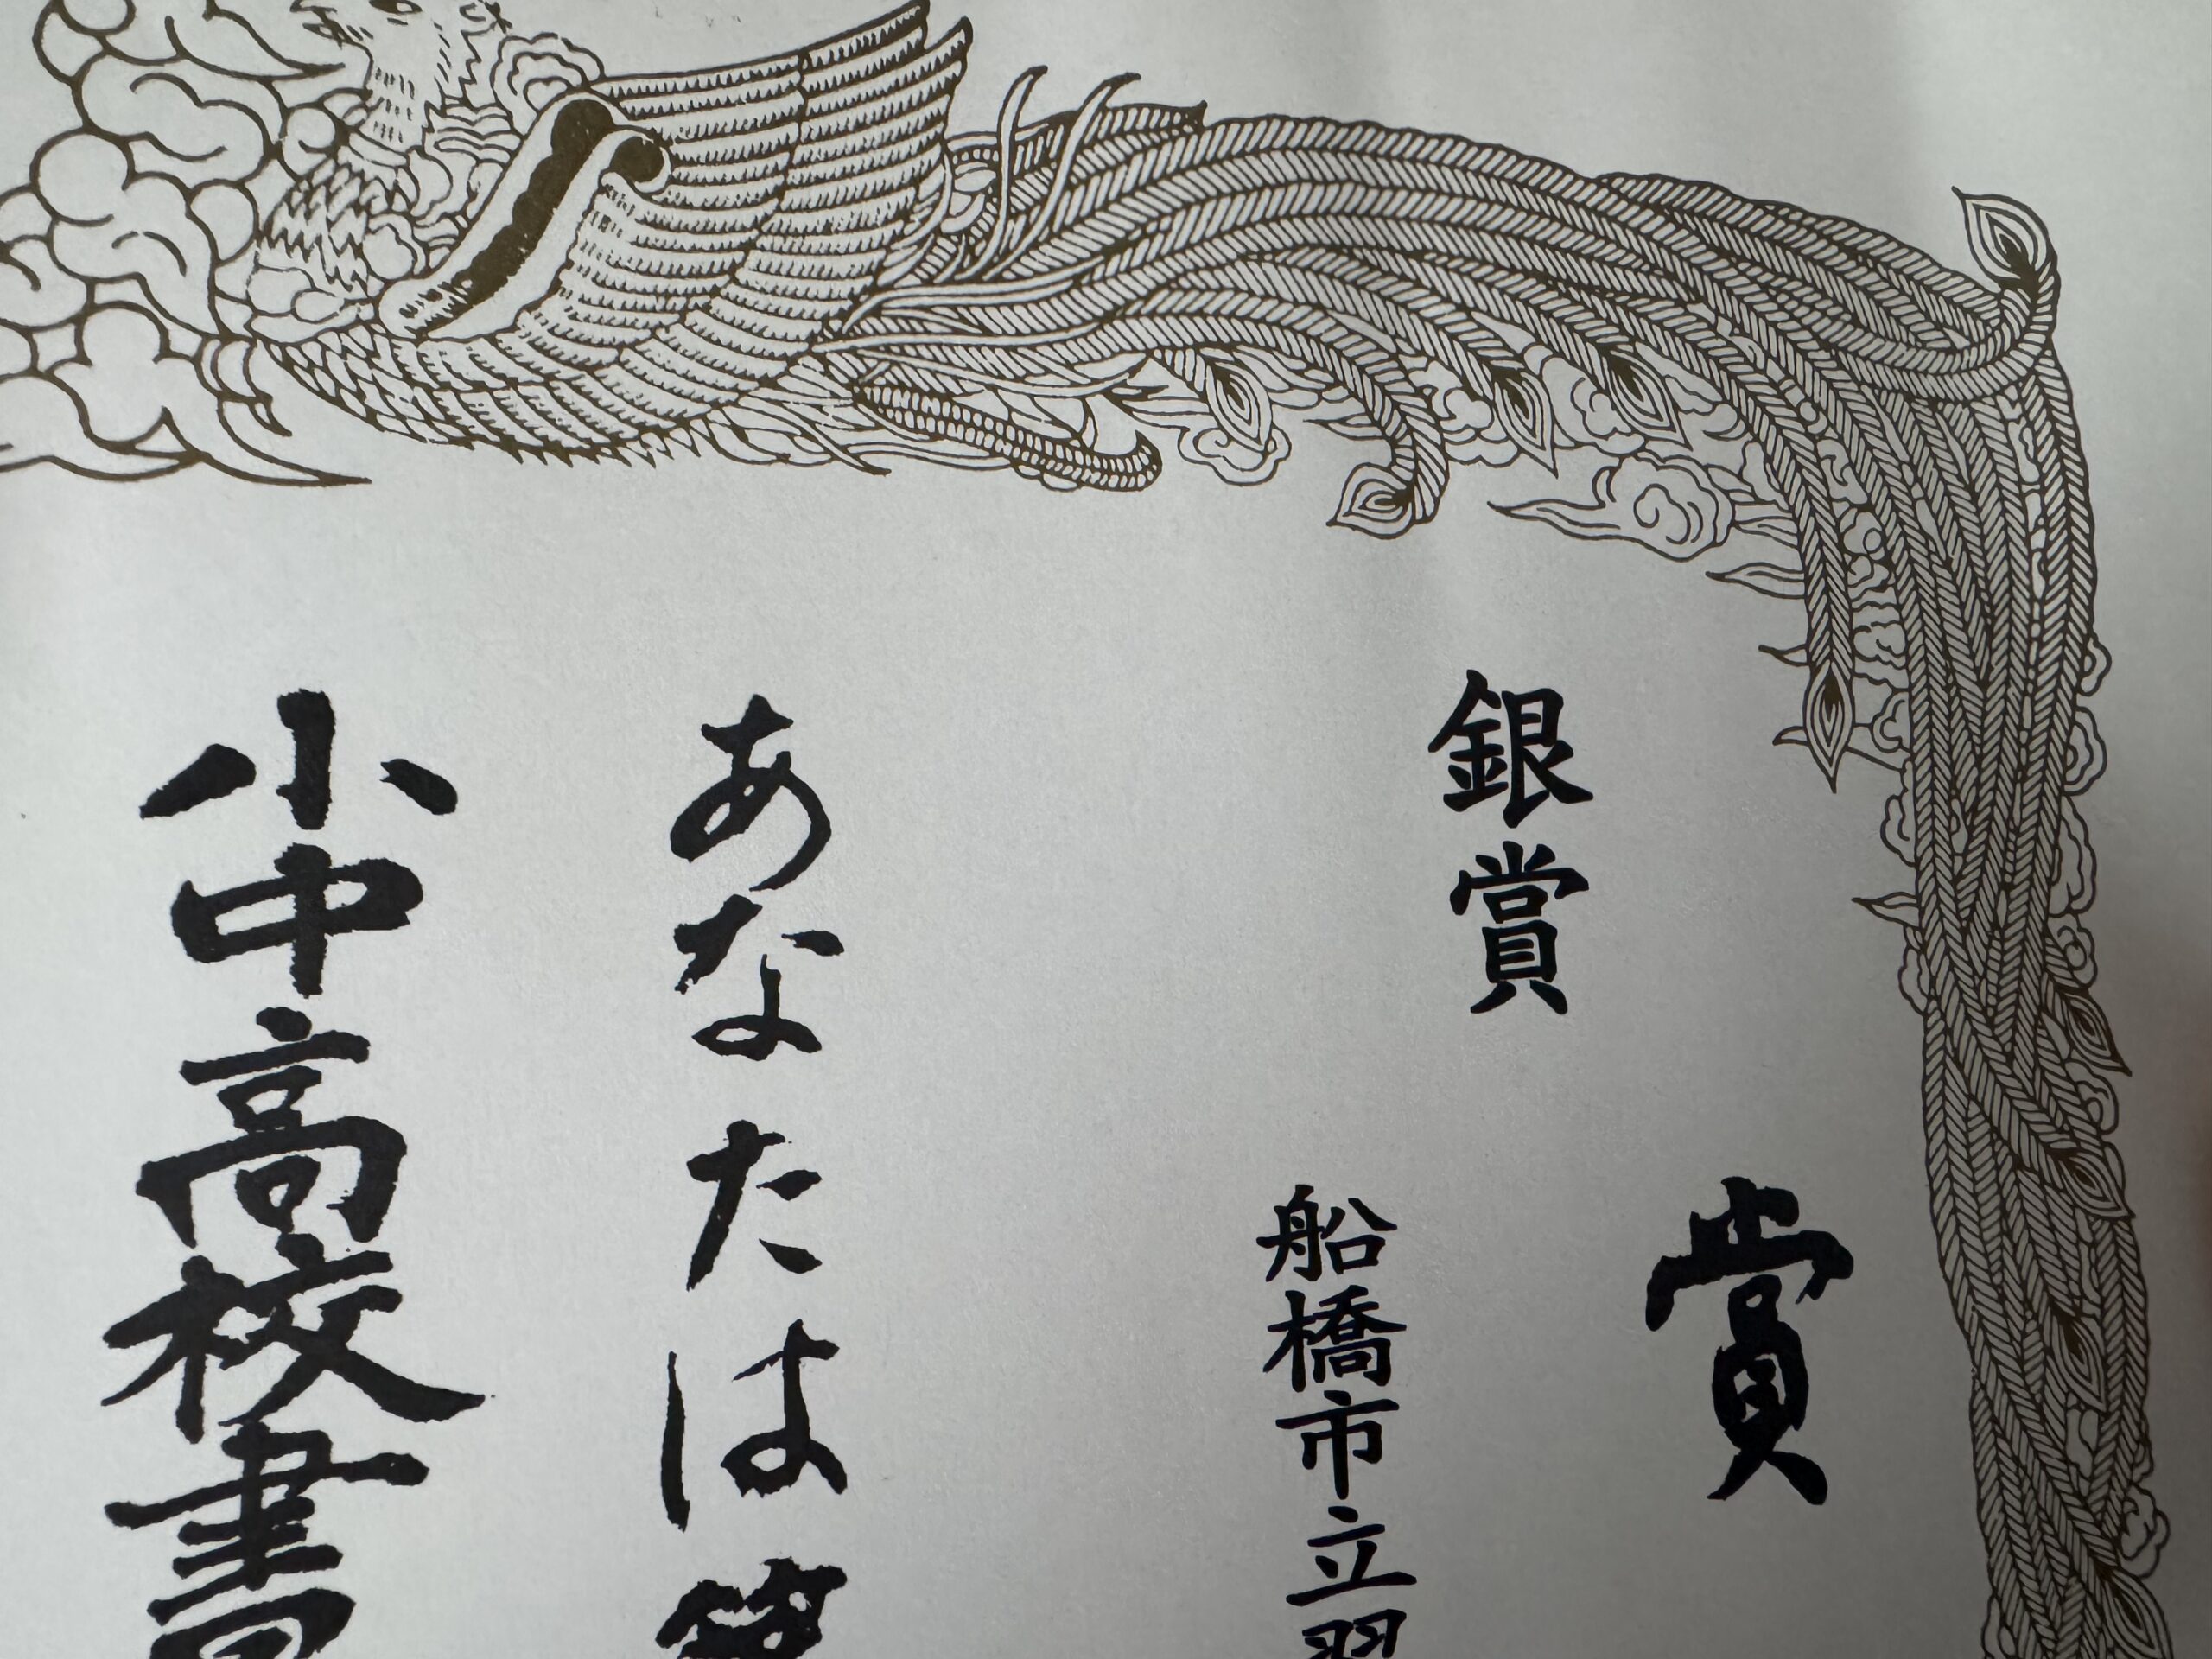 賞
銀賞
船橋市立習
あなたは第
小中高校書